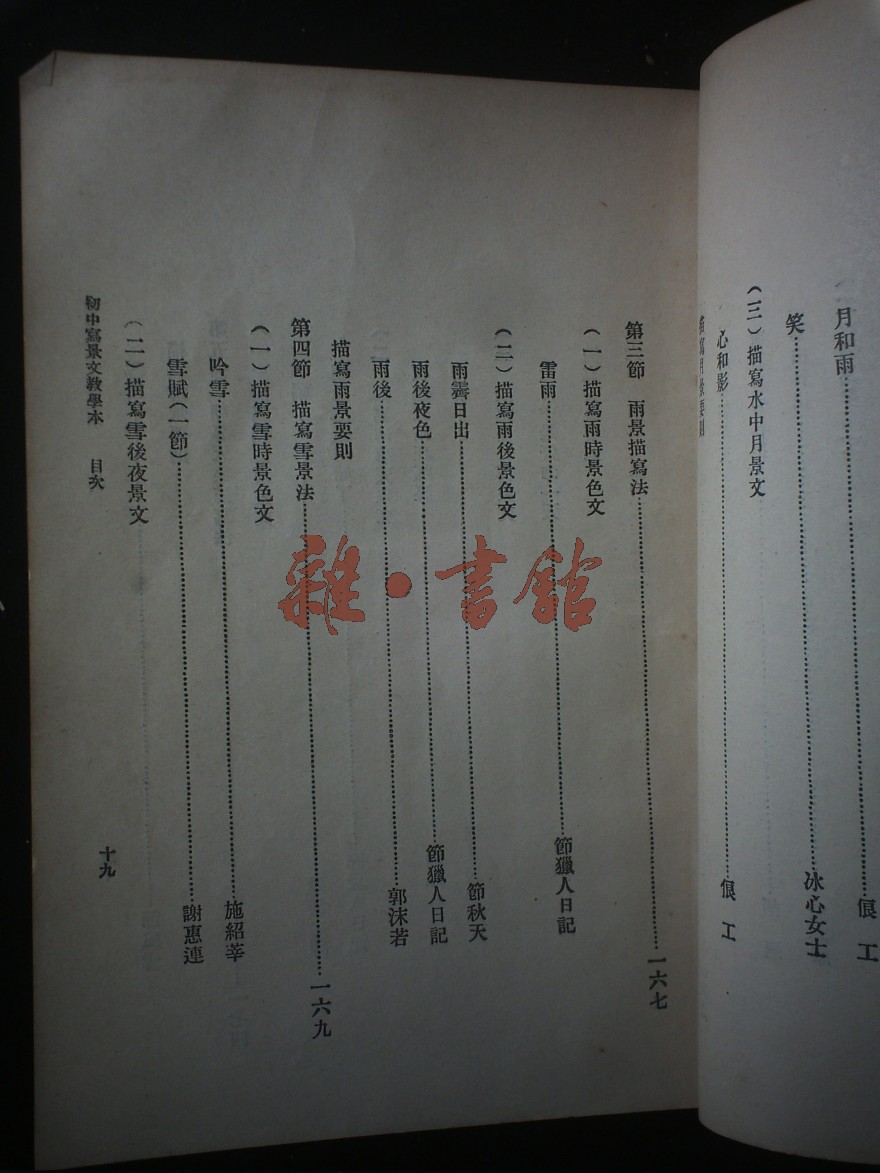 月和雨……俍工
笑……冰心女士
（三）描寫水中月景文
心和影……俍工
描寫月景要則
第三節　雨景描寫法……一六七
（一）描寫雨時景色文
雷雨……節獵人日記
（二）描寫雨後景色文
雨霽日出……節秋天
雨後夜色……節獵人日記
雨後……郭沫若
描寫雨景要則
第四節　描寫雪景法……一六九
（一）描寫雪時景色文
吟雪……施紹莘
雪賦（一節）……謝惠連
（二）描寫雪後夜景文
初中寫景文教學本　目次
十九
雜·書館